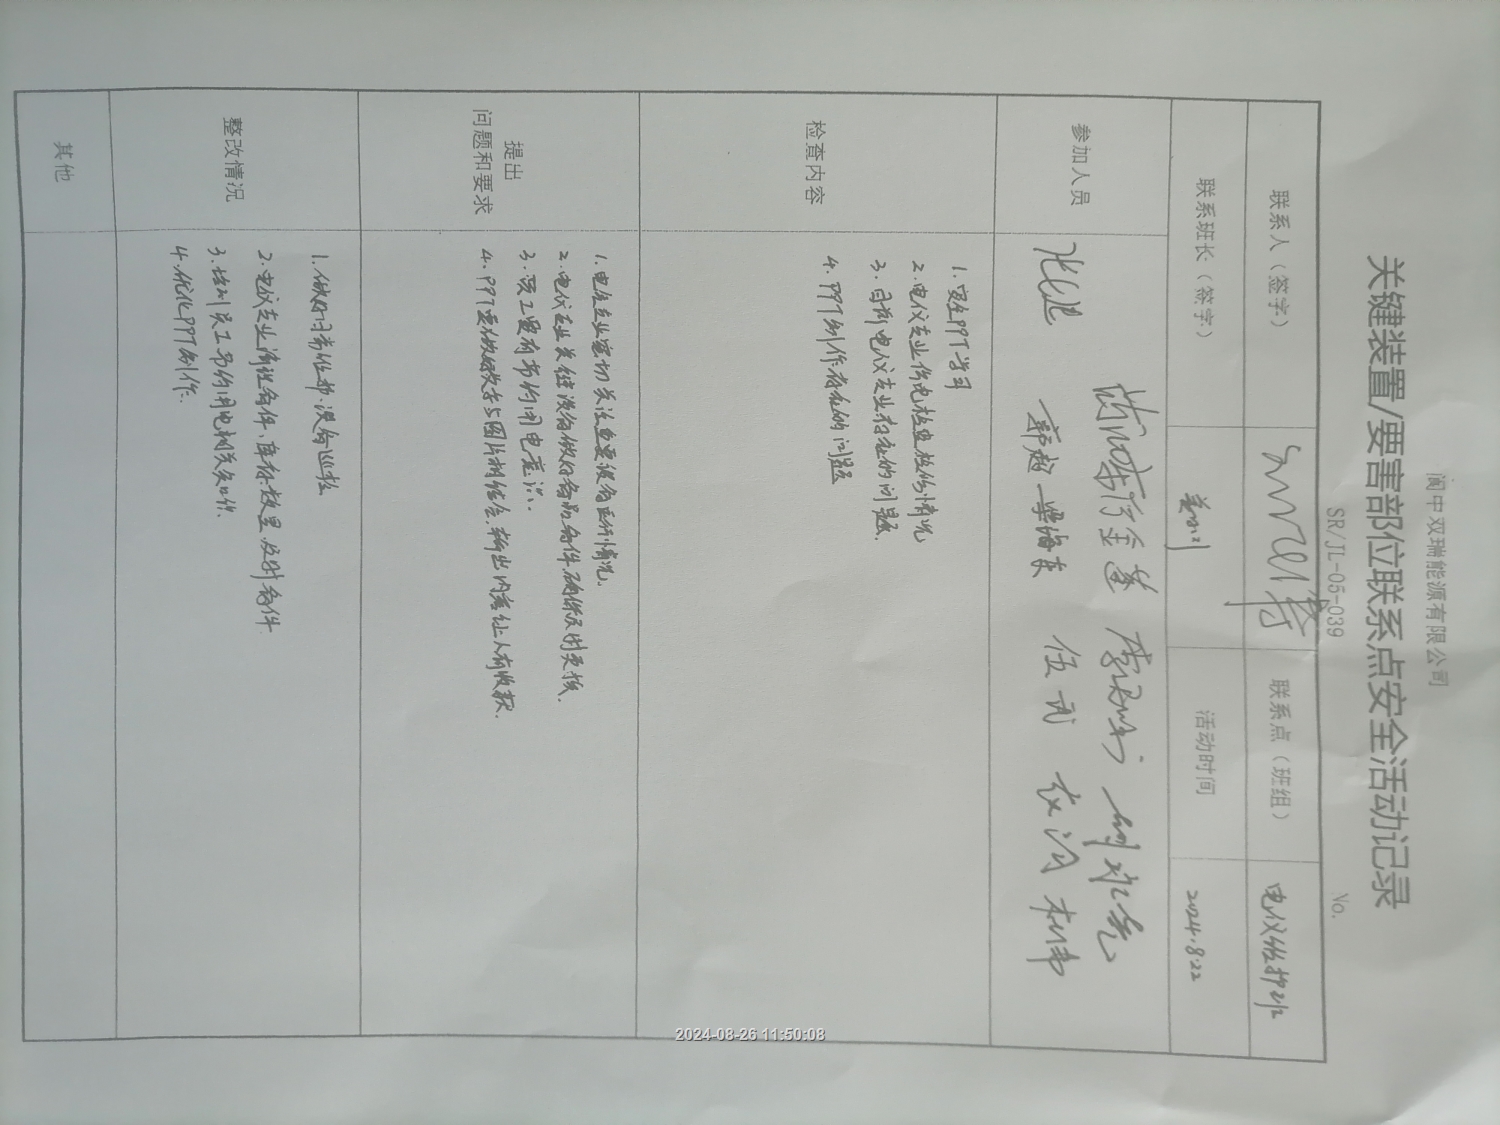 阆中双瑞能源有限公司
关键装置/要害部位联系点安全活动记录
SR/JL-05-039 No.
联系人（签字） 联系点（班组） 电仪维护班
联系班长（签字） 姜 活动时间 2024.8.22
参加人员
郭超 梁海东 伍武
检查内容
1.安全PPT学习
2.电仪专业供电检查检修情况
3.目前电仪专业存在的问题.
4.PPT制作存在的问题
提出
问题和要求
1.电仪专业密切关注重要设备运行情况.
2.电仪专业关键设备做好备品备件,确保及时更换.
3.员工要有节约用电意识.
4.PPT要做好文字与图片相结合,输出内容让人有收获.
整改情况
1.做好日常维护、设备巡检
2.电仪专业清理备件,库存数量,及时备件
3.培训员工节约用电相关知识.
4.优化PPT制作.
其他
2024-08-26 11:50:08